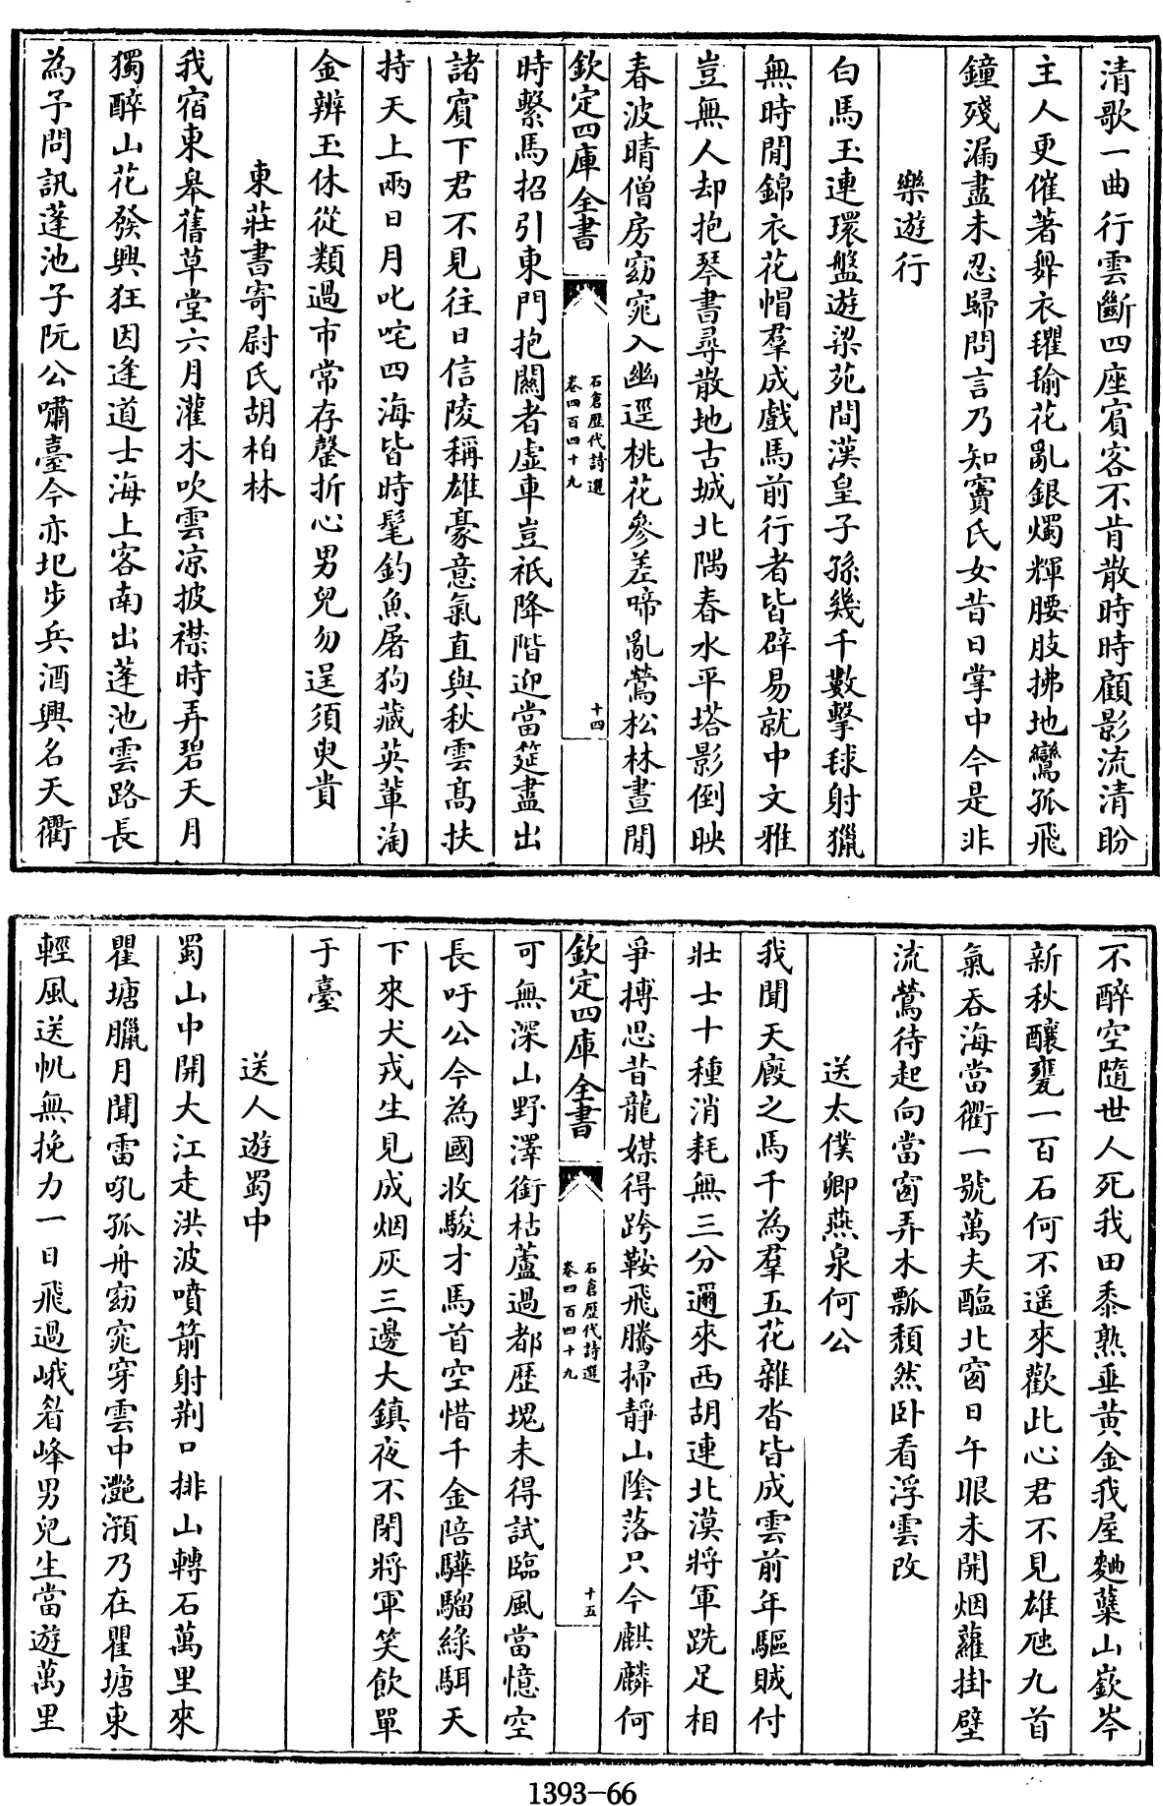 清歌一曲行雲斷四座賓客不肯散時時顧影流清盼
主人更催著舞衣瓘瑜花亂銀燭輝腰肢拂地鸞孤飛
鐘殘漏盡未忍歸問言乃知竇氏女昔日掌中今是非
樂遊行
白馬玉連環盤遊梁苑間漢皇子孫幾千數擊毬射獵
無時閒錦衣花帽羣成戲馬前行者皆辟易就中文雅
豈無人却抱琴書尋散地古城北隅春水平塔影倒映
春波晴僧房窈窕入幽逕桃花參差啼亂鶯松林晝閒
欽定四庫全書
石倉歷代詩選
卷四百四十九
十四
時繫馬招引東門抱關者虛車豈祇降階迎當筵盡出
諸賓下君不見往日信陵稱雄豪意氣直與秋雲高扶
持天上兩日月叱咤四海皆時髦釣魚屠狗藏英輩淘
金辨玉休從類過市常存罄折心男兒勿逞須臾貴
東莊書寄尉氏胡柏林
我宿東皋舊草堂六月灌木吹雲凉披襟時弄碧天月
獨醉山花發興狂因逢道士海上客南出蓬池雲路長
為子問訊蓬池子阮公嘯臺今亦圯步兵酒興名天衢
不醉空隨世人死我田黍熟垂黄金我屋麯蘖山嶔岑
新秋釀甕一百石何不遥來歡此心君不見雄虺九首
氣吞海當衢一號萬夫醢北窗日午眼未開烟蘿掛壁
流鶯待起向當窗弄木瓢頽然卧看浮雲改
送太僕卿燕泉何公
我聞天廄之馬千為羣五花雜沓皆成雲前年驅賊付
壯士十種消耗無三分邇來西胡連北漠將軍跣足相
爭搏思昔龍媒得跨鞍飛騰掃靜山陰落只今麒麟何
欽定四庫全書
石倉歷代詩選
卷四百四十九
十五
可無深山野澤銜枯蘆過都歷塊未得試臨風當憶空
長吁公今為國收駿才馬首空惜千金陪驊騮綠駬天
下來犬戎生見成烟灰三邊大鎮夜不閉將軍笑飲單
于臺
送人遊蜀中
蜀山中開大江走洪波噴箭射荆口排山轉石萬里來
瞿塘臘月聞雷吼孤舟窈窕穿雲中灔澦乃在瞿塘東
輕風送帆無挽力一日飛過峨眉峰男兒生當遊萬里
1393-66